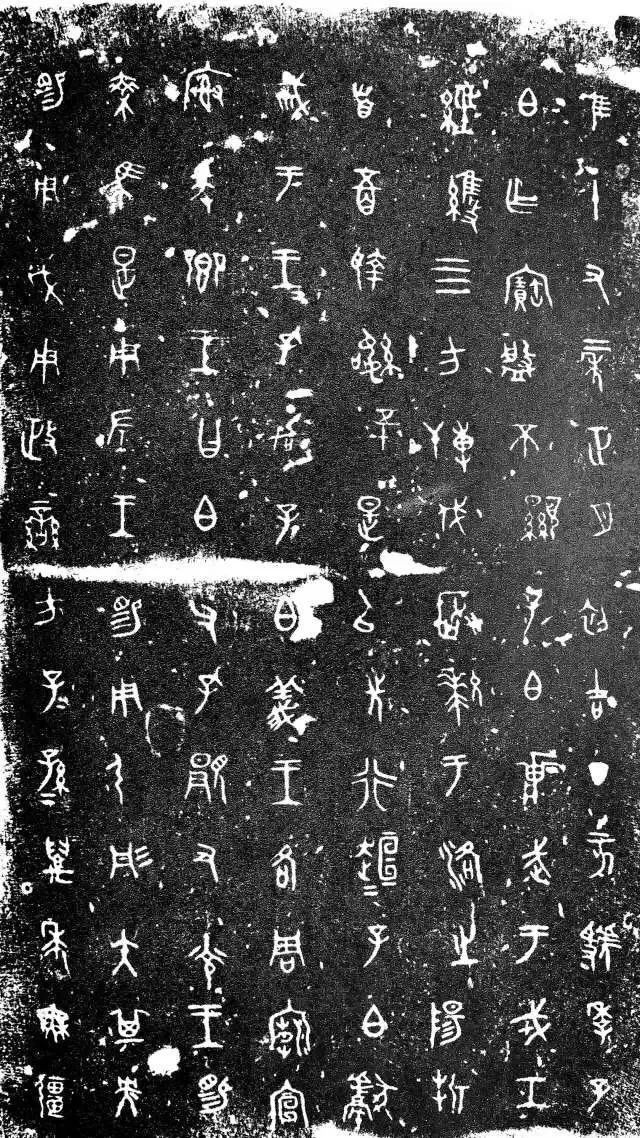 隹十又二年正月初吉丁亥虢季子
白乍寶盤不顯子白𤕌武于戎工
經維四方搏伐玁狁于洛之陽折
首五百執訊五十是以先行趄＝子白獻
馘于王＝孔加子白義王各周廟宣
廟爰卿王曰白父孔䫠又光王賜
乘馬是用左王賜用弓彤矢其央
賜用戉用政蠻方子＝孫＝萬年無疆